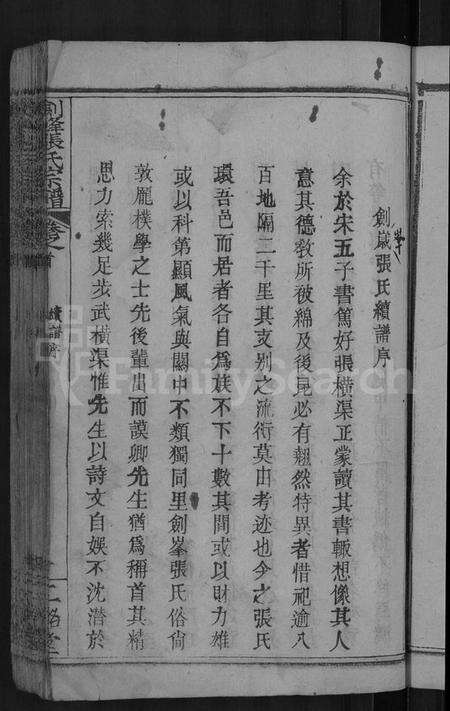 劍嵗張氏續譜序
余於宋五子書篤好張橫渠正蒙讀其書輙想像其人
意其德敎所被綿及後昆必有翹然特異者惜祀逾八
百地隔二千里其支别之流衍莫由考迹也今之張氏
環吾邑而居者各自爲族不下十數其間或以財力雄
或以科第顯風氣與關中不類獨同里劍峯張氏俗尙
敦龎樸學之士先後輩出而謨卿先生猶爲稱首其精
思力索幾足步武橫渠惟先生以詩文自娛不沈潛於
劍峯張氏宗譜
卷之首
續譜序
FamilySearch